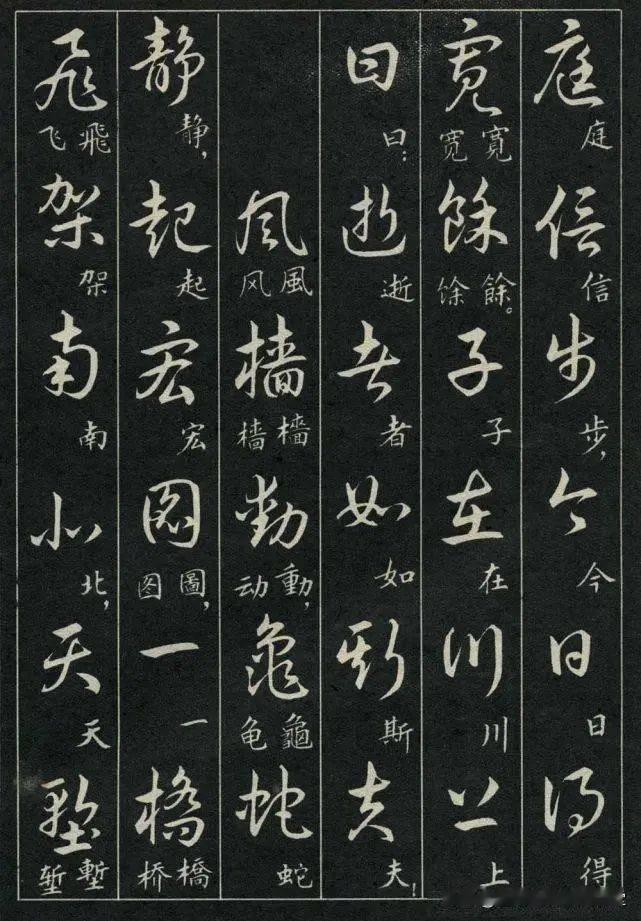 庭 庭 信 信 步 步, 今 今 日 日 得 得
寬 寬 宽 餘 餘。 馀 子 子 在 在 川 川 上 上
曰 曰: 逝 逝 者 者 如 如 斯 斯 夫 夫!
風 風 风 檣 檣 樯 動 動, 动 龜 龜 龟 蛇 蛇
静 静, 起 起 宏 宏 圖 圖, 图 一 一 橋 橋 桥
飛 飛 飞 架 架 南 南 北 北, 天 天 塹 塹 堑